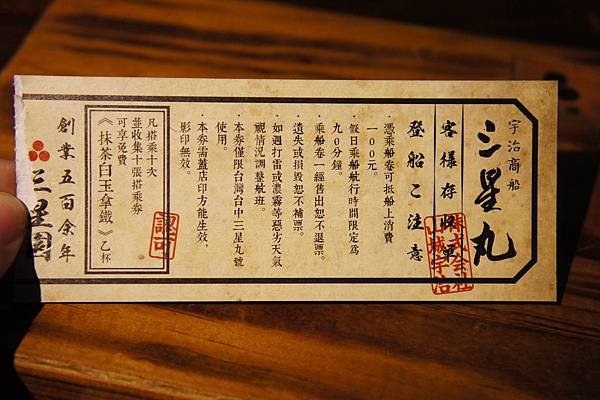 宇治商船
三星丸
客様存根單
登船ご注意
・憑乘船卷可抵船上消費
一００元。
・假日乘船航行時間限定為
９０分鐘。
・乘船卷一經售出恕不退票。
遺失或損毀恕不補票。
・如遇打雷或濃霧等惡劣天氣
視情況調整航班。
・本劵僅限台灣台中三星九號
使用。
・本劵需蓋店印方能生效，
影印無效。
凡搭乘十次
並收集十張搭乘劵
可享免費
《抹茶白玉拿鐵》乙杯
認可
創業五百余年
三星園
株式会社
山城宇治